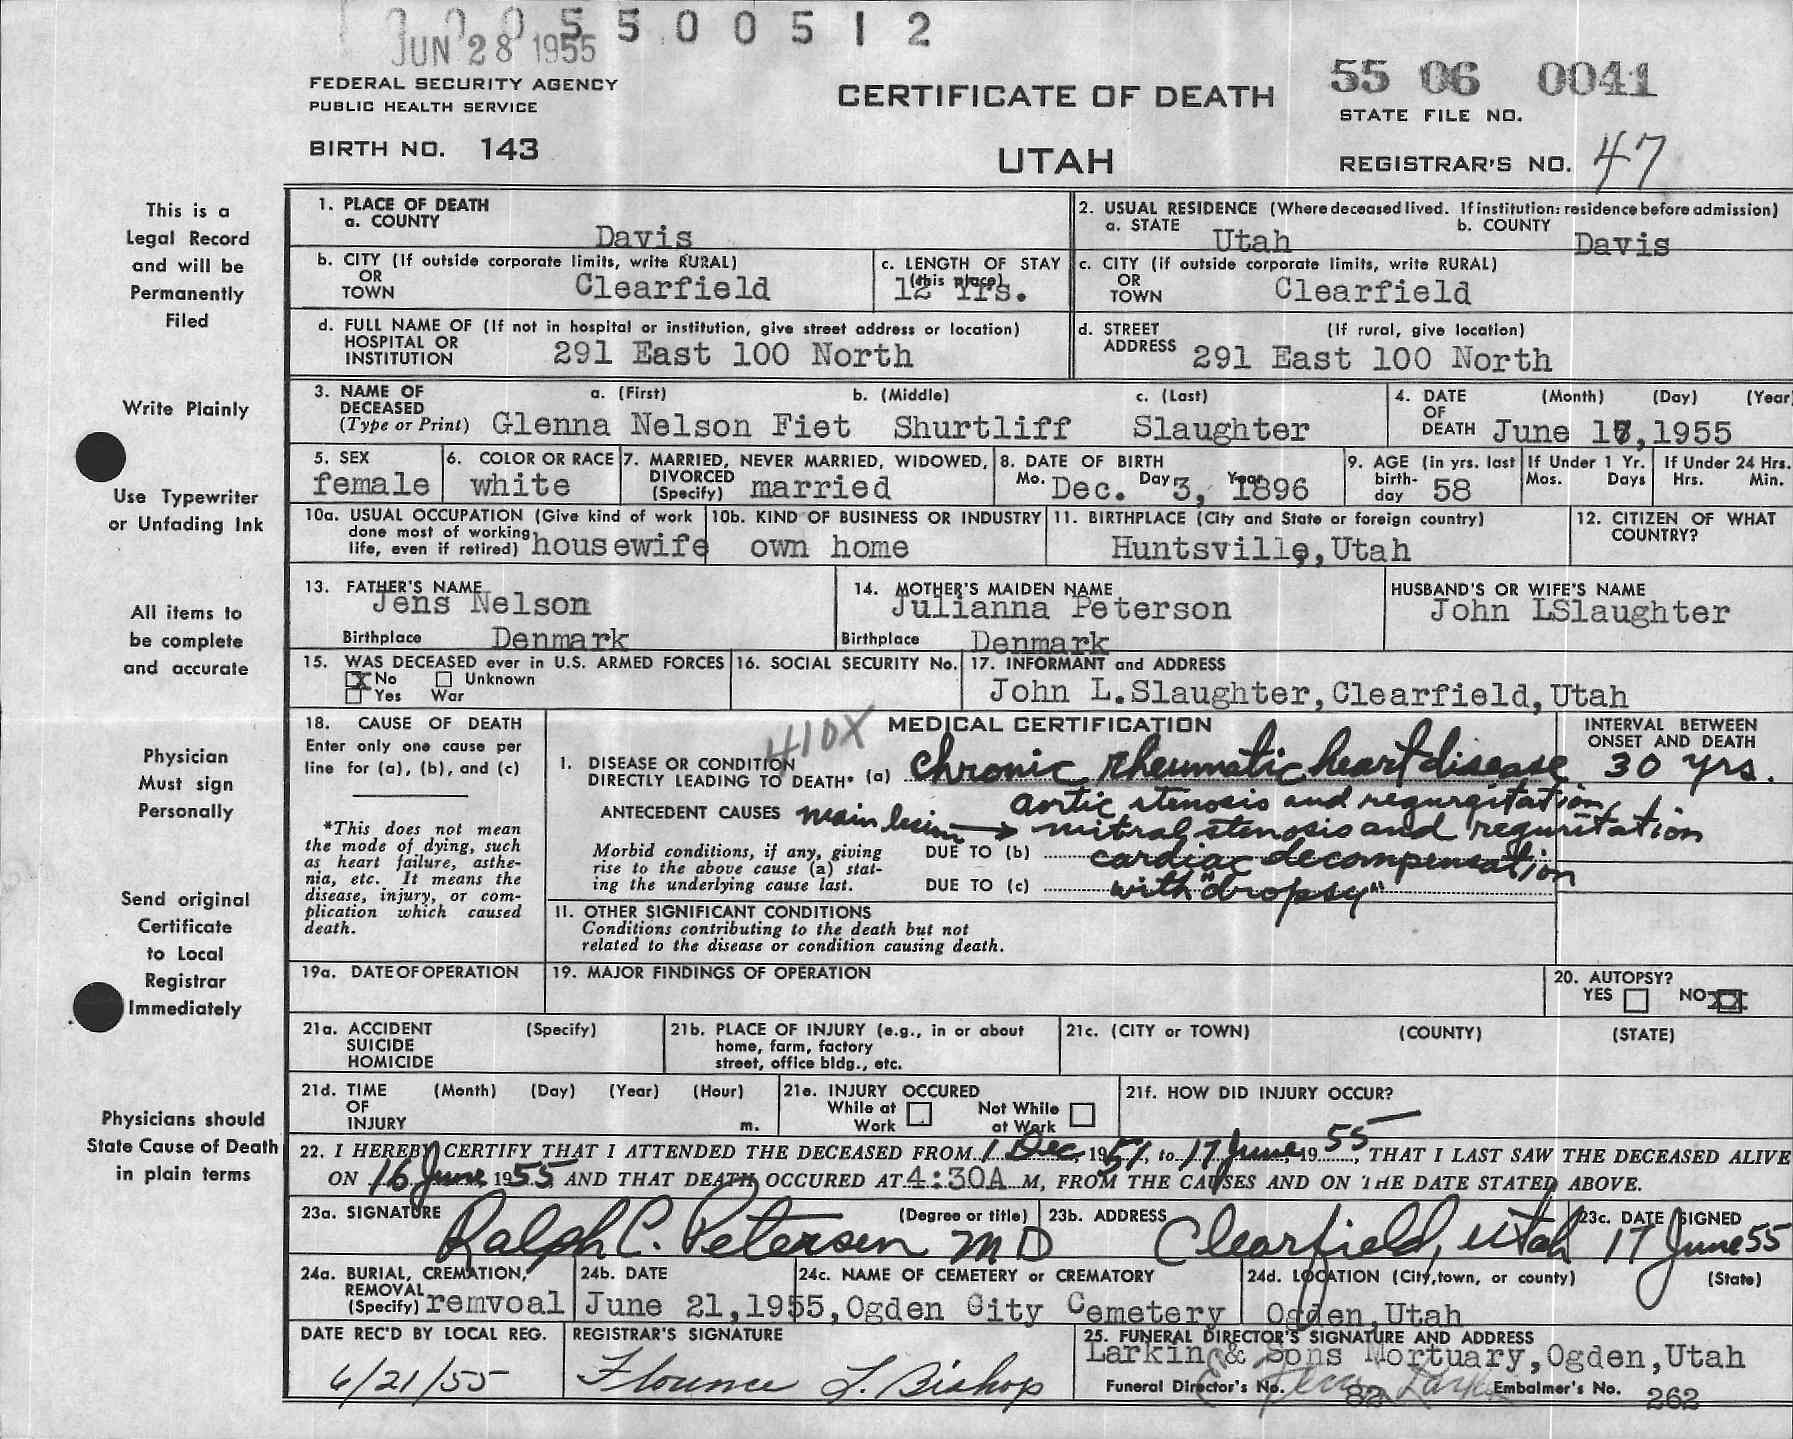 JUN 28 1955
5 5 0 0 5 1 2
FEDERAL SECURITY AGENCY
PUBLIC HEALTH SERVICE
BIRTH NO. 143
CERTIFICATE OF DEATH
UTAH
55 06 0041
STATE FILE NO.
REGISTRAR'S NO. 47
This is a
Legal Record
and will be
Permanently
Filed
Write Plainly
Use Typewriter
or Unfading Ink
All items to
be complete
and accurate
Physician
Must sign
Personally
Send original
Certificate
to Local
Registrar
Immediately
Physicians should
State Cause of Death
in plain terms
1. PLACE OF DEATH
a. COUNTY Davis
2. USUAL RESIDENCE (Where deceased lived. If institution: residence before admission)
a. STATE Utah b. COUNTY Davis
b. CITY (If outside corporate limits, write RURAL)
OR
TOWN Clearfield
c. LENGTH OF STAY
(this place)
12 Yrs.
c. CITY (if outside corporate limits, write RURAL)
OR
TOWN Clearfield
d. FULL NAME OF (If not in hospital or institution, give street address or location)
HOSPITAL OR
INSTITUTION 291 East 100 North
d. STREET (If rural, give location)
ADDRESS 291 East 100 North
3. NAME OF a. (First) b. (Middle) c. (Last)
DECEASED
(Type or Print) Glenna Nelson Fiet Shurtliff Slaughter
4. DATE (Month) (Day) (Year)
OF
DEATH June 17, 1955
5. SEX
female
6. COLOR OR RACE
white
7. MARRIED, NEVER MARRIED, WIDOWED,
DIVORCED
(Specify) married
8. DATE OF BIRTH
Mo. Dec. Day 3, Year 1896
9. AGE (in yrs. last
birth-
day 58
If Under 1 Yr.
Mos. Days
If Under 24 Hrs.
Hrs. Min.
10a. USUAL OCCUPATION (Give kind of work
done most of working
life, even if retired) housewife
10b. KIND OF BUSINESS OR INDUSTRY
own home
11. BIRTHPLACE (City and State or foreign country)
Huntsville, Utah
12. CITIZEN OF WHAT
COUNTRY?
13. FATHER'S NAME
Jens Nelson
Birthplace Denmark
14. MOTHER'S MAIDEN NAME
Julianna Peterson
Birthplace Denmark
HUSBAND'S OR WIFE'S NAME
John LSlaughter
15. WAS DECEASED ever in U.S. ARMED FORCES
X No Unknown
Yes War
16. SOCIAL SECURITY No.
17. INFORMANT and ADDRESS
John L.Slaughter, Clearfield, Utah
18. CAUSE OF DEATH
Enter only one cause per
line for (a), (b), and (c)
*This does not mean
the mode of dying, such
as heart failure, asthe-
nia, etc. It means the
disease, injury, or com-
plication which caused
death.
410X
MEDICAL CERTIFICATION
I. DISEASE OR CONDITION
DIRECTLY LEADING TO DEATH* (a) chronic rheumatic heart disease
INTERVAL BETWEEN
ONSET AND DEATH
30 yrs.
aortic stenosis and regurgitation,
ANTECEDENT CAUSES main lesion → mitral stenosis and reguritation
Morbid conditions, if any, giving
rise to the above cause (a) stat-
ing the underlying cause last.
DUE TO (b) cardiac decompensation
DUE TO (c) with "dropsy"
II. OTHER SIGNIFICANT CONDITIONS
Conditions contributing to the death but not
related to the disease or condition causing death.
19a. DATE OF OPERATION
19. MAJOR FINDINGS OF OPERATION
20. AUTOPSY?
YES NO XX
21a. ACCIDENT (Specify)
SUICIDE
HOMICIDE
21b. PLACE OF INJURY (e.g., in or about
home, farm, factory
street, office bldg., etc.
21c. (CITY or TOWN) (COUNTY) (STATE)
21d. TIME (Month) (Day) (Year) (Hour)
OF
INJURY m.
21e. INJURY OCCURED
While at Work Not While at Work
21f. HOW DID INJURY OCCUR?
22. I HEREBY CERTIFY THAT I ATTENDED THE DECEASED FROM 1 Dec, 1951, to 17 June, 19 55, THAT I LAST SAW THE DECEASED ALIVE
ON 16 June 1955, AND THAT DEATH OCCURED AT 4:30A M, FROM THE CAUSES AND ON THE DATE STATED ABOVE.
23a. SIGNATURE (Degree or title)
Ralph C. Petersen MD
23b. ADDRESS
Clearfield, Utah
23c. DATE SIGNED
17 June 55
24a. BURIAL, CREMATION,
REMOVAL
(Specify) remvoal
24b. DATE
June 21, 1955,
24c. NAME OF CEMETERY or CREMATORY
Ogden City Cemetery
24d. LOCATION (City, town, or county) (State)
Ogden, Utah
DATE REC'D BY LOCAL REG.
6/21/55
REGISTRAR'S SIGNATURE
Flounce L. Bishop
25. FUNERAL DIRECTOR'S SIGNATURE AND ADDRESS
Larkin & Sons Mortuary, Ogden, Utah
Funeral Director's No. 82 Embalmer's No. 262